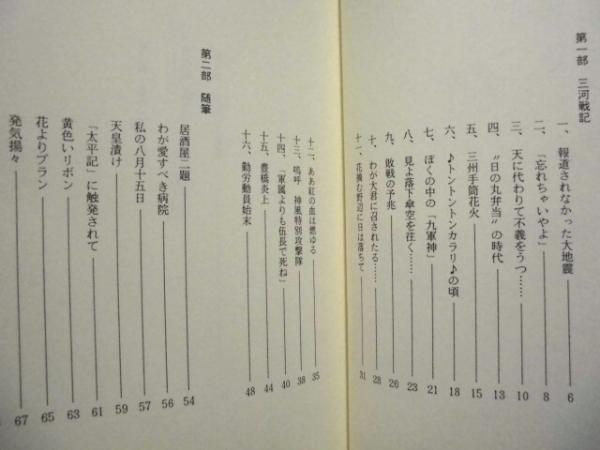 第一部　三河戦記
一、報道されなかった大地震 6
二、「忘れちゃいやよ」 8
三、天に代わりて不義をうつ…… 10
四、“日の丸弁当”の時代 13
五、三州手筒花火 15
六、♪トントントンカラリ♪の頃 18
七、ぼくの中の「九軍神」 21
八、見よ落下傘空を往く…… 23
九、敗戦の予兆 26
十、わが大君に召されたる…… 28
十一、花摘む野辺に日は落ちて 31
十二、ああ紅の血は燃ゆる 35
十三、嗚呼　神風特別攻撃隊 38
十四、「軍属よりも伍長で死ね」 40
十五、豊橋炎上 44
十六、勤労動員始末 48
第二部　随筆
居酒屋二題 54
わが愛すべき病院 56
私の八月十五日 57
天皇漬け 59
「太平記」に触発されて 61
黄色いリボン 63
花よりプラン 65
発気揚々 67